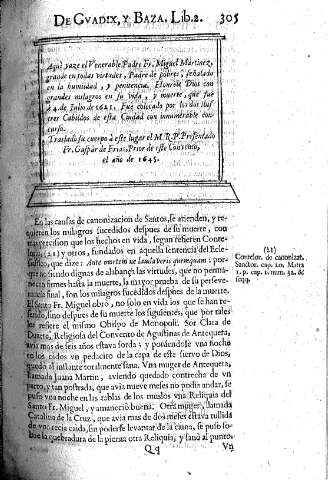 DE GVADIX, Y BAZA, Lib.2. 305
Aqui yaze el Venerable Padre Fr. Miguel Martinez,
grande en todas virtudes, Padre de pobres, señalado
en la humildad, y penitencia. Honròle Dios con
grandes milagros en su vida, y muerte, que fuè
à 4. de Julio de 1621. Fuè colocado por los dos Ilus
tres Cabildos de esta Ciudad con innumerable con
curso.
Traslado su cuerpo à este lugar el M. R. P. Presentado
Fr. Gaspar de Frias, Prior de este Convento,
el año de 1645.
En las causas de canonizacion de Santos, se atienden, y re-
quieren los milagros sucedidos despues de su muerte, con
mas precision que los hechos en vida, segun refieren Conte-
(21) y otros, fundados en aquella sentencia del Ecle-
que dize: Ante mortem ne laudaveris quemquam: por-
que no siendo dignas de alabança las virtudes, que no perma-
firmes hasta la muerte, la mayor prueba de su perseve-
final, son los milagros sucedidos despues de la muerte.
El Santo Fr. Miguel obrò, no solo en vida los que se han re-
sino despues de su muerte los siguientes, que por tales
los refiere el mismo Obispo de Monopoli. Sor Clara de
Duarte, Religiosa del Convento de Agustinas de Antequera,
avia mas de seis años estava sorda: y poniendose vna noche
en los oidos vn pedacito de la capa de este siervo de Dios,
quedò al instante totalmente sana. Vna muger de Antequera,
llamada Juana Martin, aviendo quedado contrecha de vn
parto, y tan postrada, que avia nueve meses no podia andar, se
puso vna noche en las rodillas de los muslos vna Reliquia del
Santo Fr. Miguel, y amaneciò buena. Otra muger, llamada
Catalina de la Cruz, que avia mas de dos meses estava tullida
de vna recia caida, sin poderse levantar de la cama, se puso so-
bre la quebradura de la pierna otra Reliquia, y sanò al punto.
Qq Vn
(21)
Contelor. de canonizat.
Sanctor. cap. 20. Matta
1. p. cap. 1. num. 32. &
supp.